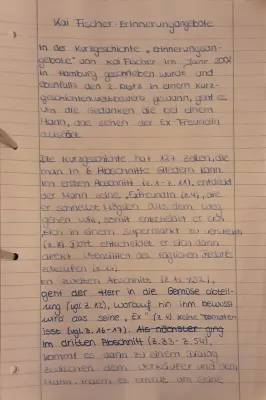 Kai Fischer - Erinnerungangebote
In der Kurzgeschichte „Erinnerungsan-
gebote" von Kai Fischer im Jahr 2002
in Hamburg geschrieben wurde und
ebenfalls den 2. Platz in einem Kurz-
geschichtenwettbewerb gewann, geht es
um die Gedanken die bei einem
Mann, das sehen der Ex Freundin
auslöst.
Die Kurzgeschichte hat 127 Zeilen, die
man in 6 Abschnitte gliedern kann.
Im ersten Abschnitt (z.1-z.11), entdeckt
der Mann seine „Exfreundin (z.4), die
er schnellst möglich aus dem Weg
gehen will, somit entscheidet er sich
sich in einem Supermarkt zu
(z.8). Dort entscheidet er sich dann
direkt des täglichen Bedarfs
(z.11).
Im zweiten Abschnitt (z.12-z.32),
geht der Herr in die Gemüse abteil-
lung (vgl. z.12), worauf hin ihm bewusst
wird das seine „Ex" (z.) keine Tomaten
isst (vgl. z. 16-17). Als nächster ging
im dritten Abschnitt (z.33-z.54),
kommt es dann zu einem Dialog
zwischen dem Verkäufer und dem
Mann, indem es um seine